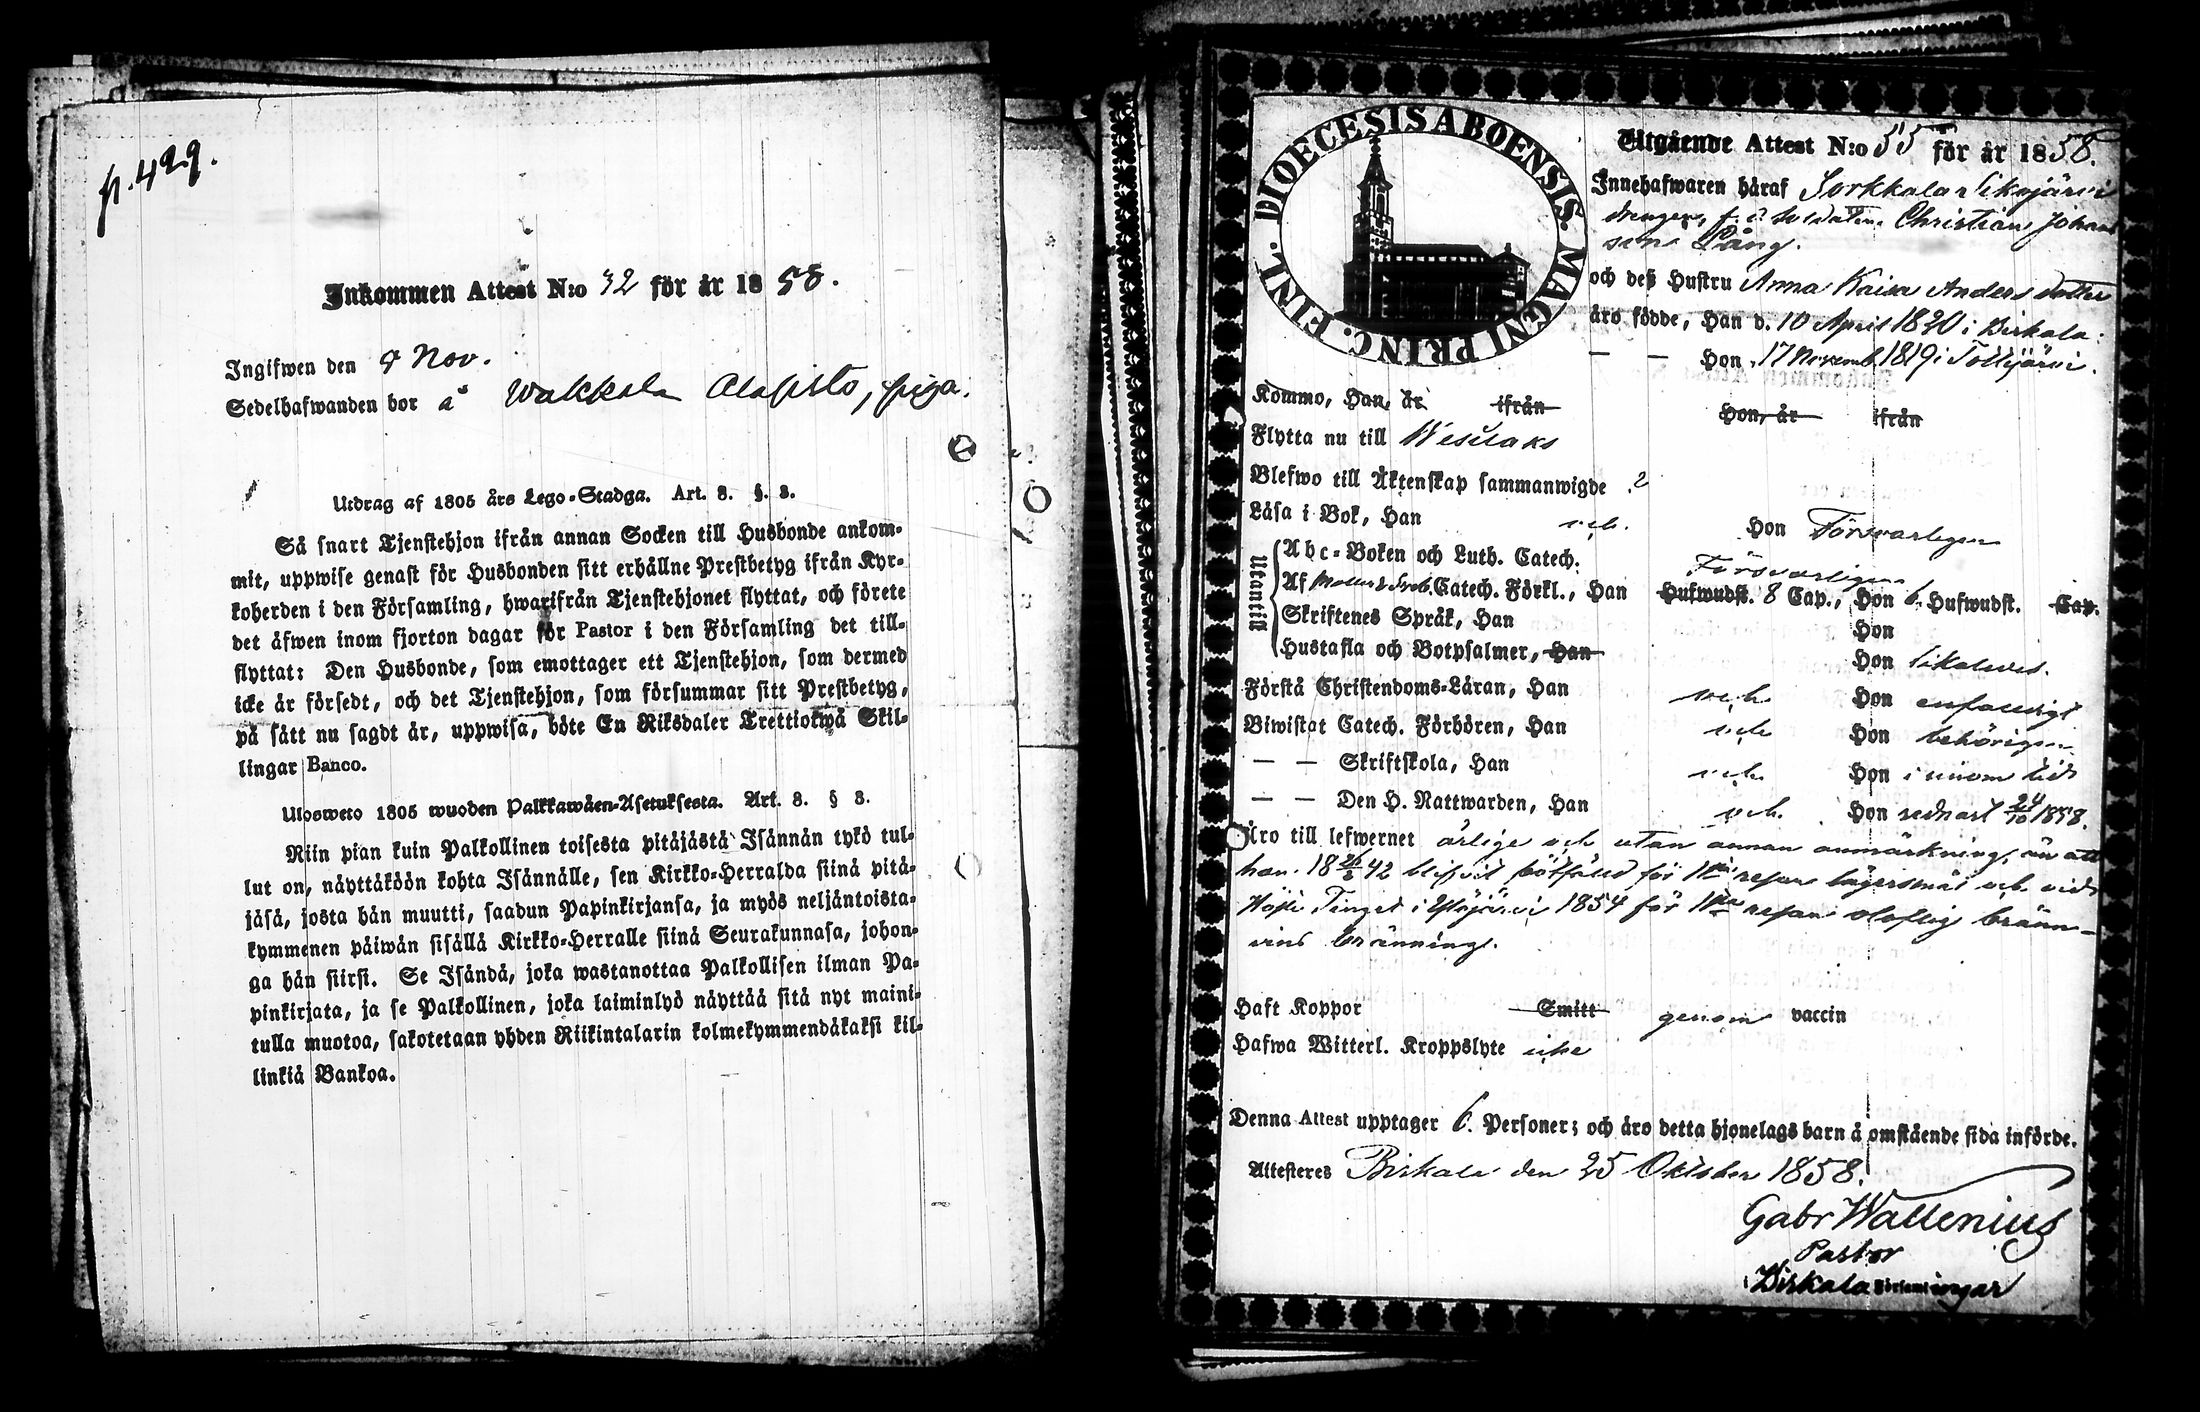 p. 429.
Inkommen Attest N:o 32 för år 1858.
Ingifwen den 9 Nov.
Sedelhafwanden bor å Wakkala Alapisto, piga.
Utdrag af 1805 års Lego-Stadga. Art. 8. §. 3.
Så snart Tjenstehjon ifrån annan Socken till Husbonde ankom-
mit, uppwise genast för Husbonden sitt erhållne Prestbetyg ifrån Kyr-
koherden i den Församling, hwarifrån Tjenstehjonet flyttat, och förete
det äfwen inom fjorton dagar för Pastor i den Församling det till-
flyttat: Den Husbonde, som emottager ett Tjenstehjon, som dermed
icke är försedt, och det Tjenstehjon, som försummar sitt Prestbetyg,
på sätt nu sagdt är, uppwisa, böte En Riksdaler Trettiotwå Skil-
lingar Banco.
Ulosweto 1805 wuoden Palkkawäen-Asetuksesta. Art. 8. § 3.
Niin pian kuin Palkollinen toisesta pitäjästä Isännän tykö tul-
lut on, näyttäköön kohta Isännälle, sen Kirkko-Herralda siinä pitä-
jäsä, josta hän muutti, saadun Papinkirjansa, ja myös neljäntoista-
kymmenen päiwän sisällä Kirkko-Herralle siinä Seurakunnasa, johon-
ga hän siirsi. Se Isändä, joka wastanottaa Palkollisen ilman Pa-
pinkirjata, ja se Palkollinen, joka laiminlyö näyttää sitä nyt maini-
tulla muotoa, sakotetaan yhden Riikintalarin kolmekymmendäkaksi kil-
linkiä Bankoa.
DIOECESIS ABOENSIS. MAGNI PRINC. FINL.
Utgående Attest N:o 55 för år 1858.
Innehafwaren häraf Sorkkala Sikojärvi
drengen, f. d. soldaten Christian Johans
son Lång.
och deß Hustru Anna Kaisa Anders dotter
äro födde, Han d. 10 April 1820 i Birkala:
— — Hon 17 Novemb 1819 i Tottijärvi.
Kommo, Han, år ifrån Hon, år ifrån
Flytta nu till Wesilaks
Blefwo till Äktenskap sammanwigde
Läsa i Bok, Han och Hon Försvarligen
Utantill
Abc-Boken och Luth. Catech. Försvarligen
Af Catech. Förkl., Han Hufwudst. 8 Cap., Hon 6 Hufwudst. Cap.
Skriftenes Språk, Han Hon
Hustafla och Botpsalmer, Han Hon likaledes.
Förstå Christendoms-Läran, Han och Hon enfaldigt
Biwistat Catech. Förhören, Han och Hon behörigen
— — Skriftskola, Han och Hon i sinom tid
— — Den H. Nattwarden, Han och Hon sednast 24/10 1858.
Äro till lefwernet ärlige och utan annan anmärkning, än att
han 18 42 blifvit bötfäld för 1sta resan lägersmål och vid
Höste Tinget i Ylöjärvi 1854 för 1sta resan olaflig bränn-
vins bränning.
Haft Koppor Smitt genom vaccin
Hafwa Witterl. Kroppslyte icke
Denna Attest upptager 6. Personer; och äro detta hjonelags barn å omstående sida införde.
Attesteres Birkala den 25 Oktober 1858.
Gabr Wallenius
Pastor
i Birkala Församlingar